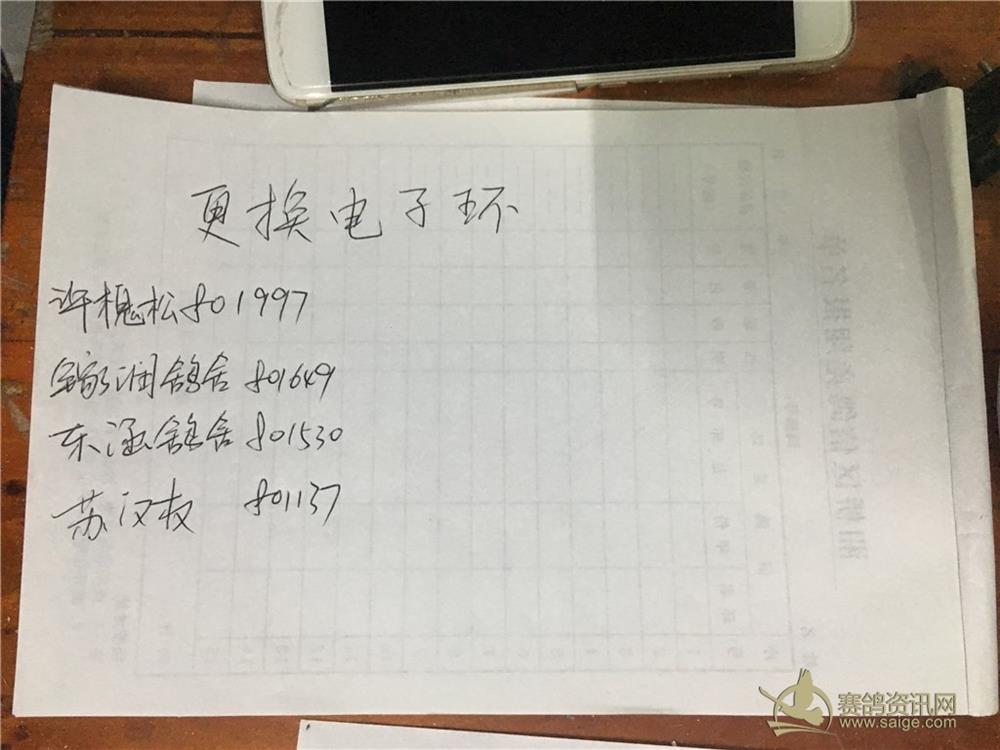 更换电子环
许槐松801997
润鸽舍 801649
东涵鸽舍 801530
苏汉权 801137
赛鸽资讯网
www.saige.com